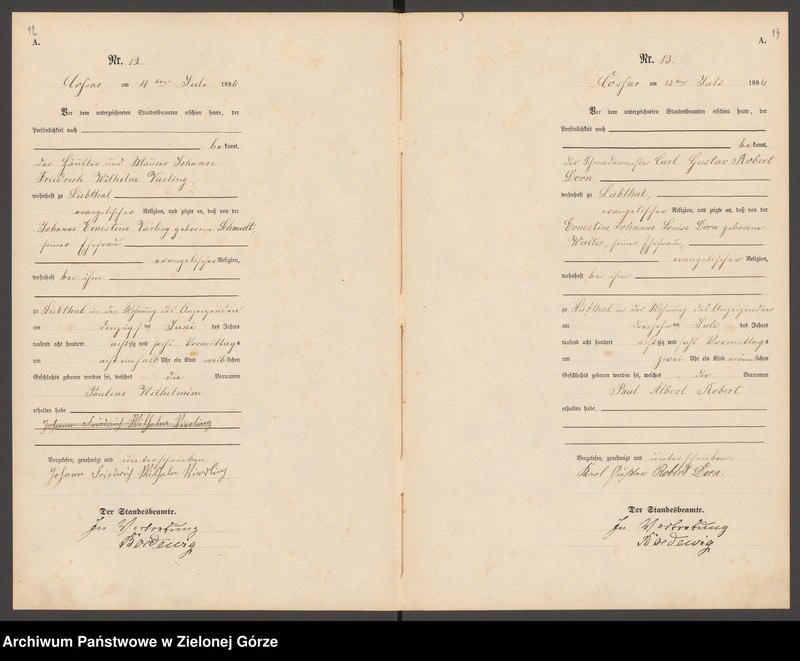 12
A.
Nr. 12.
Cossar am 4 ten Juli 1886
Vor dem unterzeichneten Standesbeamten erschien heute, der
Persönlichkeit nach
be kannt,
der Häusler und Maurer Johann
Friedrich Wilhelm
wohnhaft zu Liebthal
evangelischer Religion, und zeigte an, daß von der
Johanne Ernestine geborene Schmidt,
seiner Ehefrau
evangelischer Religion,
wohnhaft bei ihm
zu Liebthal in der Wohnung des Anzeigenden
am ten Juni des Jahres
tausend acht hundert achtzig und sechs Vormittags
um acht einhalb Uhr ein Kind weib lichen
Geschlechts geboren worden sei, welches die Vornamen
Pauline Wilhelmine
erhalten habe
Johann Friedrich Wilhelm
Vorgelesen, genehmigt und unterschrieben
Johann Friedrich Wilhelm
Der Standesbeamte.
In Vertretung
Bordewig
13
A.
Nr. 13.
Cossar am 13 ten Juli 1886
Vor dem unterzeichneten Standesbeamten erschien heute, der
Persönlichkeit nach
be kannt,
der Schmiedemeister Carl Gustav Robert
Dorn,
wohnhaft zu Liebthal,
evangelischer Religion, und zeigte an, daß von der
Ernestine Johanne Louise Dorn geborene
Walter, seiner Ehefrau,
evangelischer Religion,
wohnhaft bei ihm
zu Liebthal in der Wohnung des Anzeigenden
am ten Juli des Jahres
tausend acht hundert achtzig und sechs Vormittags
um zwei Uhr ein Kind männ lichen
Geschlechts geboren worden sei, welches die Vornamen
Paul Albert Robert
erhalten habe.
Vorgelesen, genehmigt und unterschrieben.
Karl Gustav Robert Dorn.
Der Standesbeamte.
In Vertretung
Bordewig
Archiwum Państwowe w Zielonej Górze